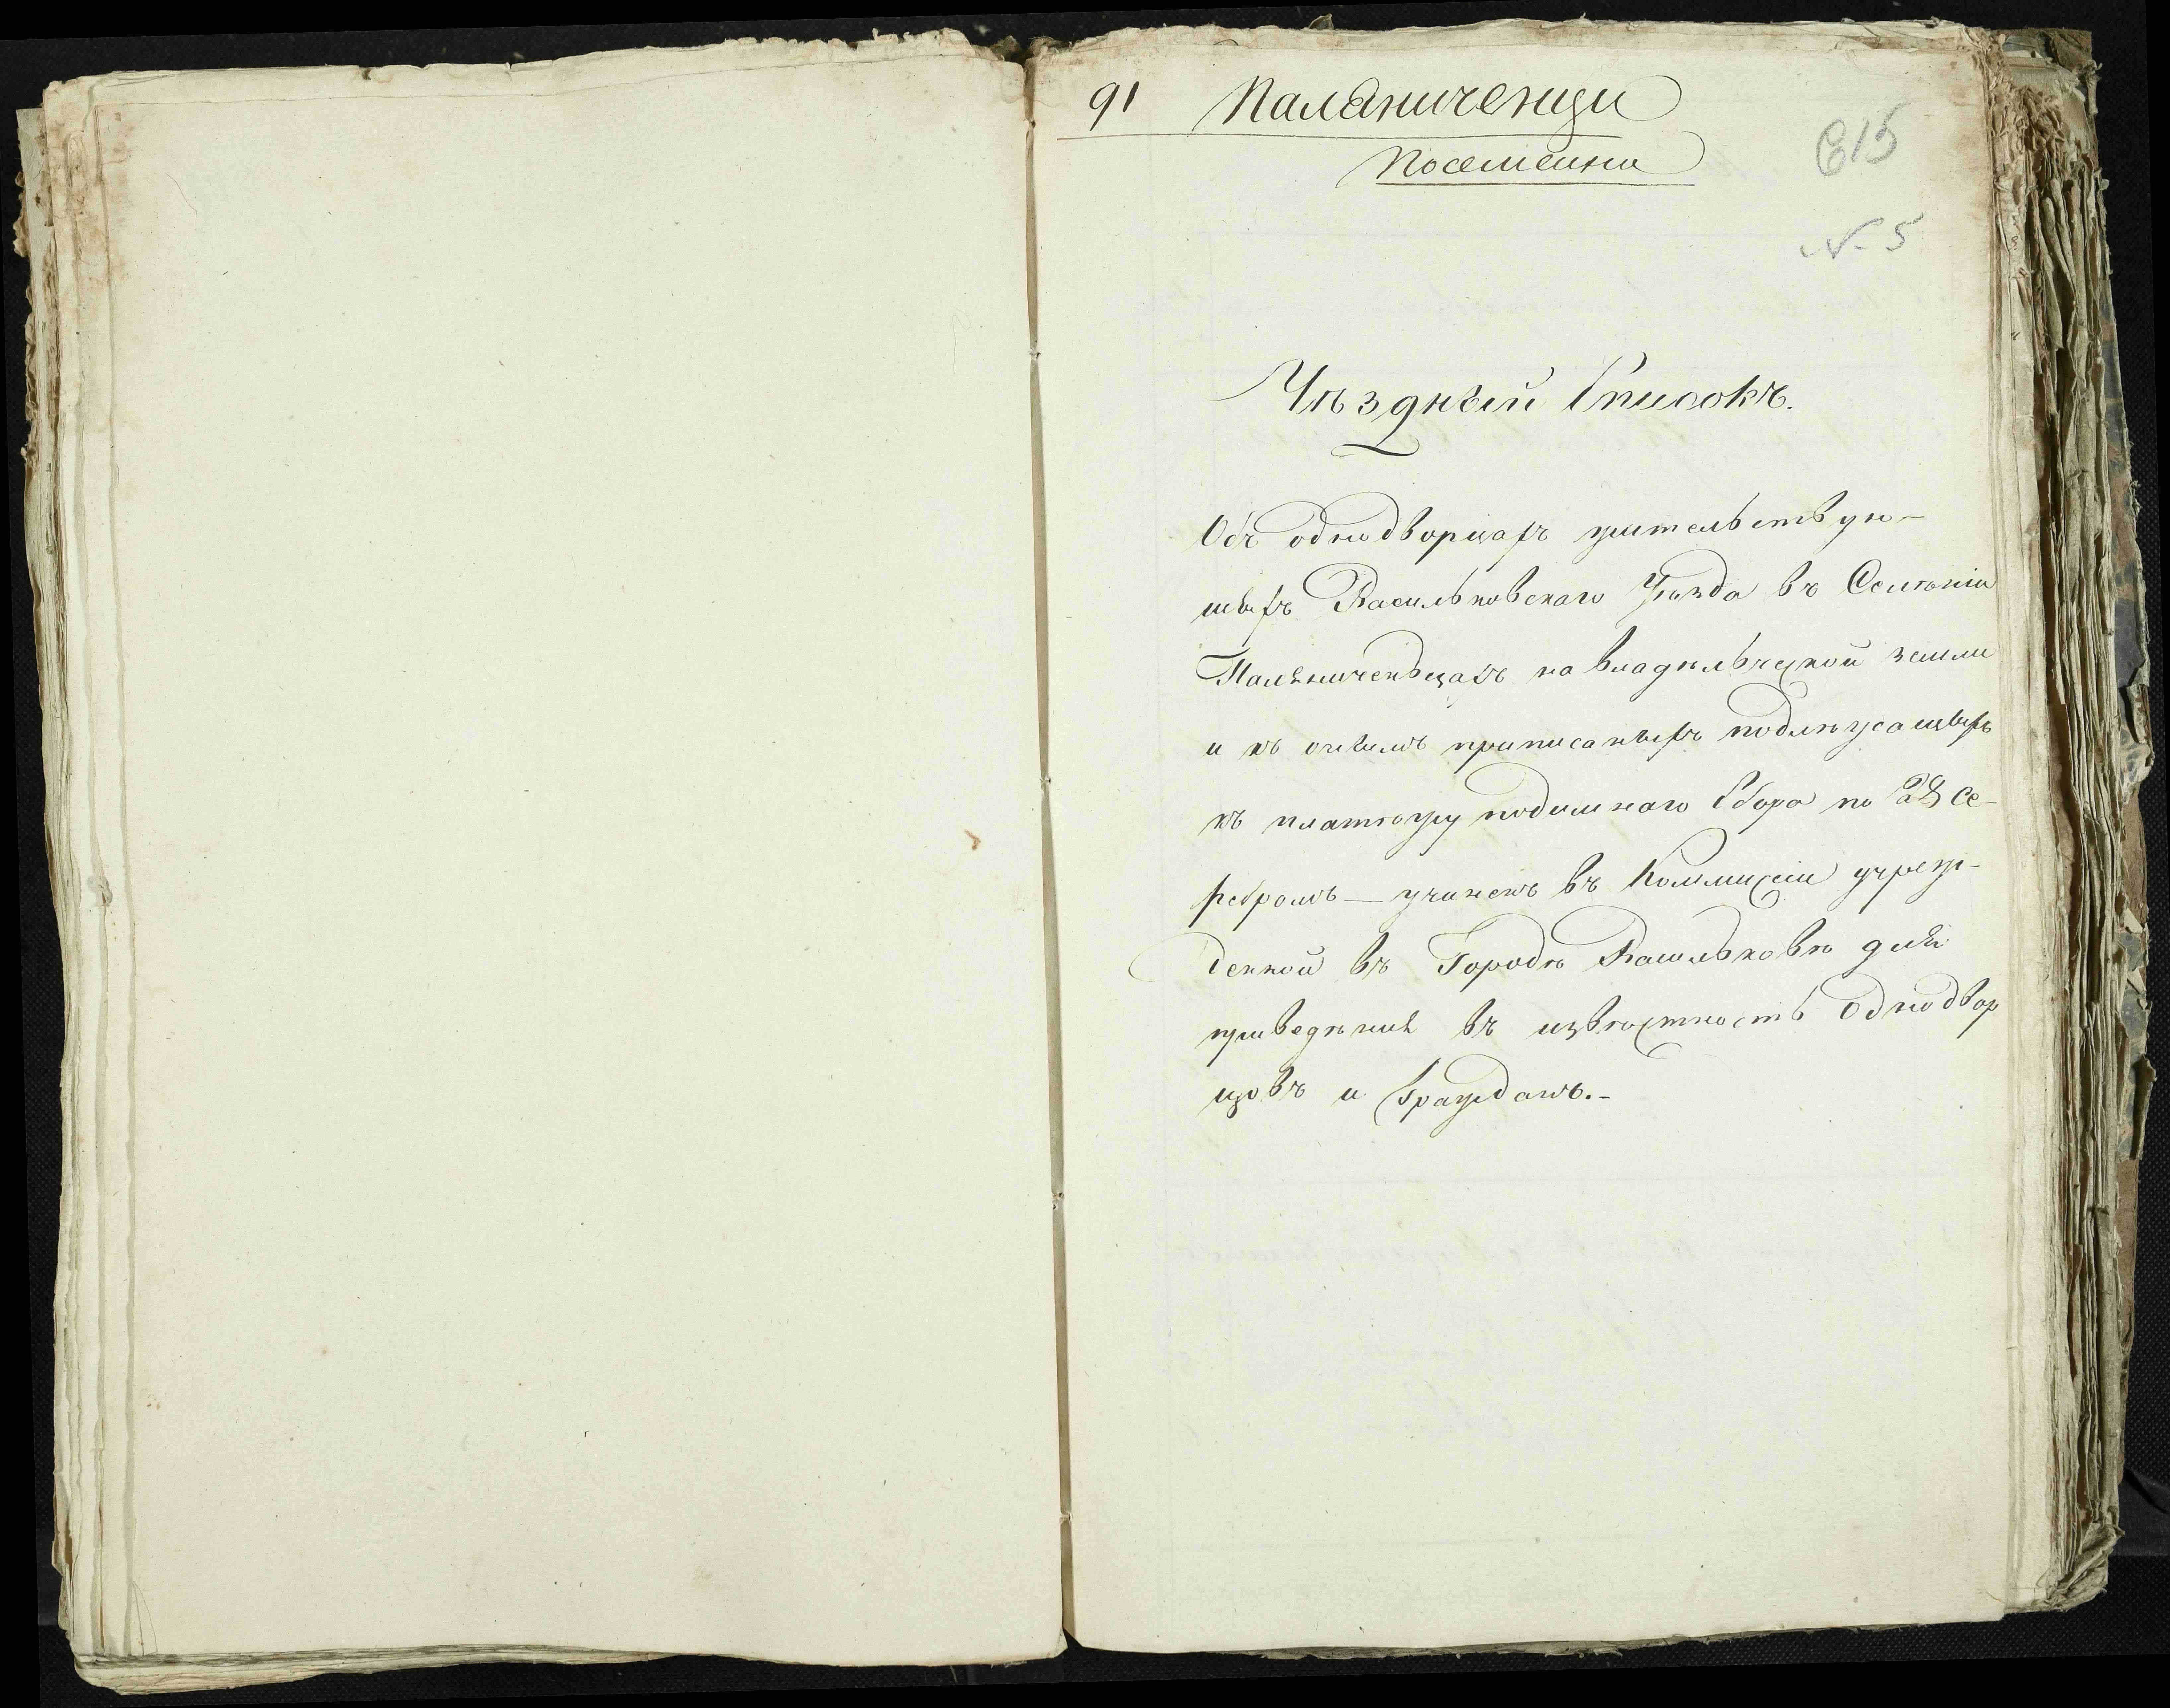 91 Паляниченци
Посемейни
615
N. 5
Уѣздный Списокъ.
Объ однодворцахъ жительствую-
щихъ Васильковскаго Уѣзда въ Селѣніи
Паляниченьцахъ на владѣльческой земли
и къ онымъ приписаныхъ подлѣжащихъ
къ платѣжу подымнаго Сбора по 2 Се-
ребромъ — учиненъ въ Коммисіи учреж-
денной въ Городѣ Васильковѣ для
приведѣния въ извѣстность Однодвор
цовъ и Гражданъ.-